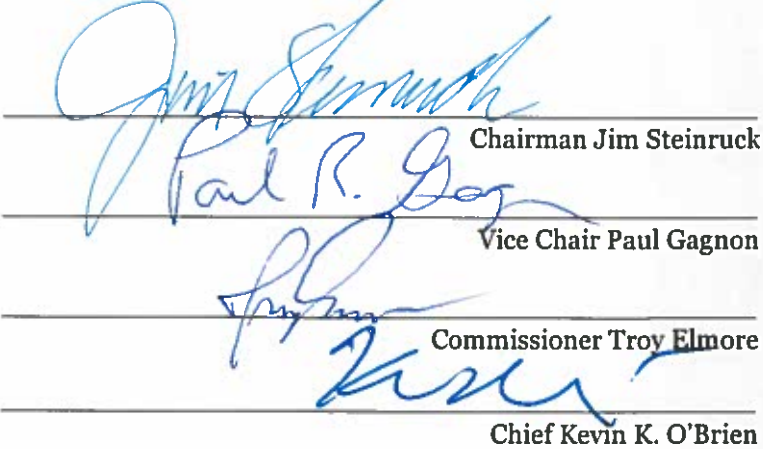 Jim Steinruck
Chairman Jim Steinruck
Paul R. Gag
Vice Chair Paul Gagnon
Commissioner Troy Elmore
Chief Kevin K. O'Brien